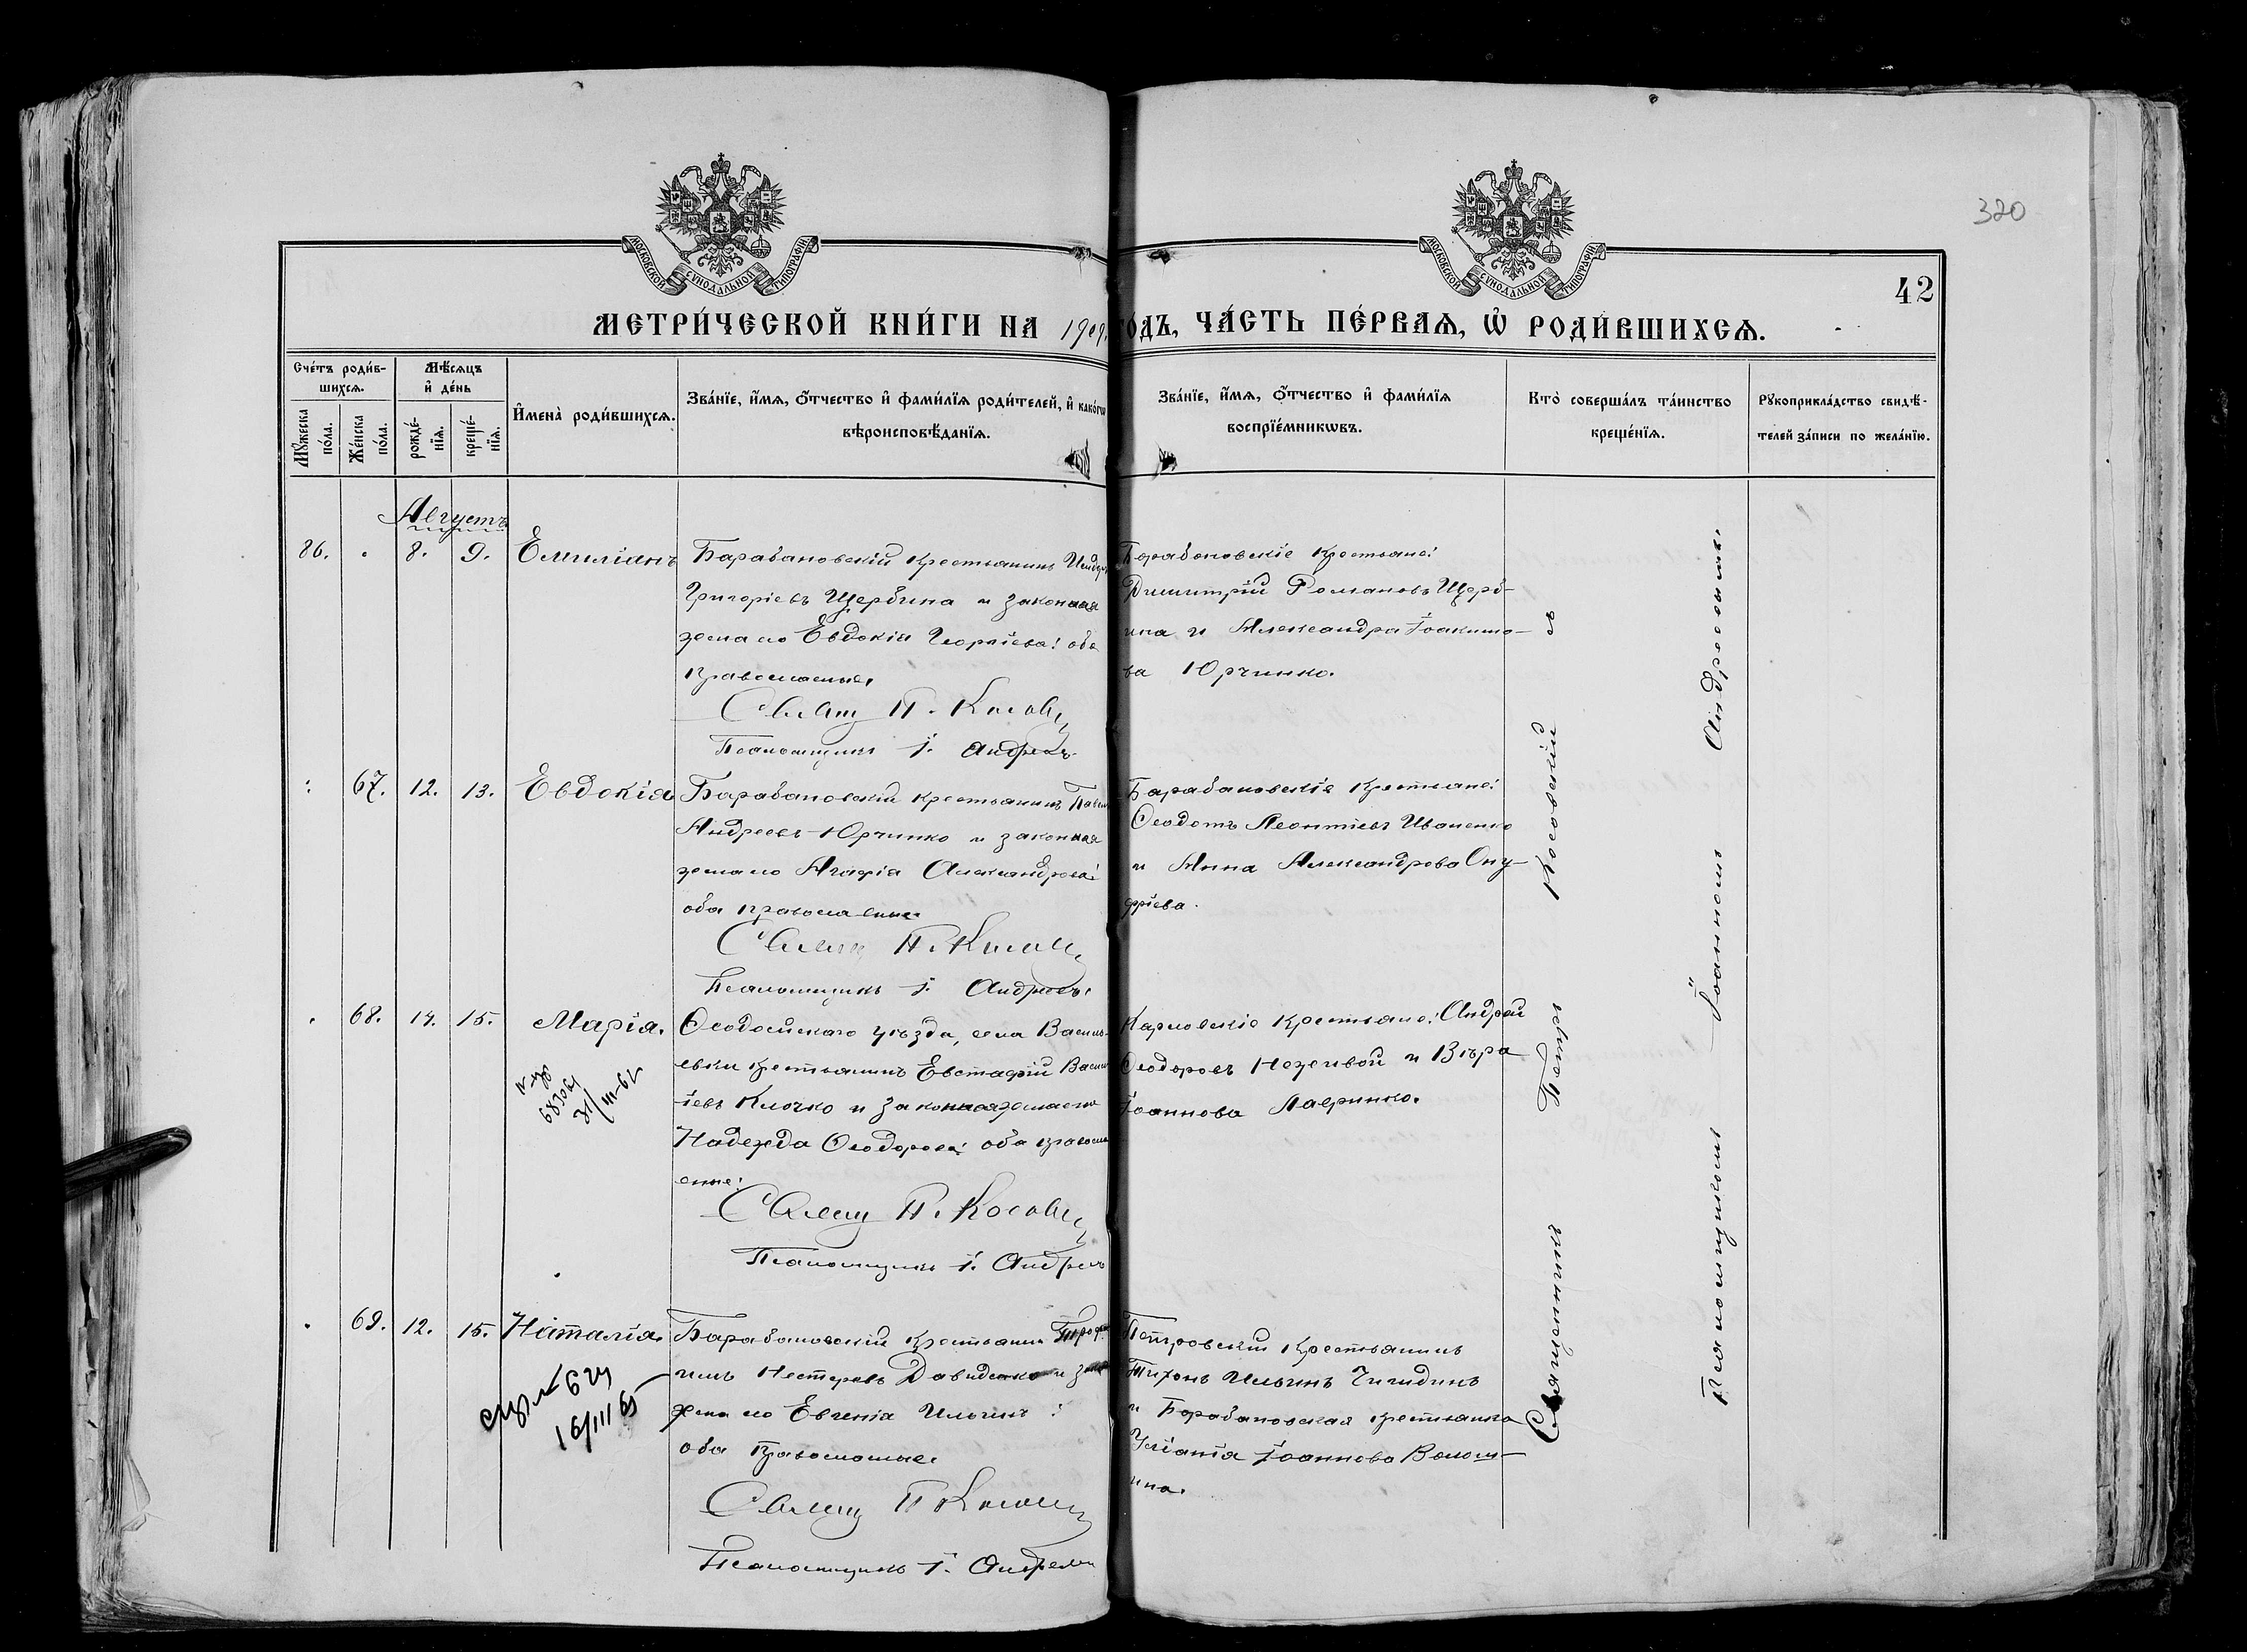 320
42
МОСКОВСКОЙ СѴНОДАЛЬНОЙ ТИПОГРАФІИ
МОСКОВСКОЙ СѴНОДАЛЬНОЙ ТИПОГРАФІИ
МЕТРИ́ЧЕСКОЙ КНИ́ГИ НА 1909 ГОДЪ, ЧА́СТЬ ПЕ́РВАѦ, Ѡ҆ РОДИ́ВШИХСѦ.
Сче́тъ роди́в-
шихсѧ.
Мꙋжеска по́ла.
Же́нска по́ла.
Мѣ́сѧцъ
и҆ де́нь
рожде́-
нїѧ.
креще́-
нїѧ.
И҆мена̀ роди́вшихсѧ.
Зва́нїе, и҆́мѧ, ѻ҆́тчество и҆ фами́лїѧ роди́телей, и҆ како́гѡ
вѣроисповѣ́данїѧ.
Зва́нїе, и҆́мѧ, ѻ҆́тчество и҆ фами́лїѧ
воспрїе́мникѡвъ.
Кто̀ соверша́лъ та́инство
креще́нїѧ.
Рꙋкоприкла́дство свидѣ́-
телей за́писи по жела́нїю.
Августъ
86. 8. 9. Емиліанъ
Барабановскій крестьянинъ Исидоръ
Григоріевъ Щербина и законная
жена его Евдокія Георгіева: оба
православные.
Свящ П. Косовс
Псаломщикъ І. Андреевъ
Барабановскіе крестьяне:
Димитрій Романовъ Щерб-
ина и Александра Іоакимо-
ва Юрченко.
67. 12. 13. Евдокія
Барабановскій крестьянинъ Павелъ
Андреевъ Юрченко и законная
жена его Агафія Александрова:
оба православные.
Свящ П. Косовс
Псаломщикъ І. Андреевъ
Барабановскіе крестьяне:
Ѳеодотъ Леонтіевъ Иваненко
и Анна Александрова Ону-
фріева.
68. 14. 15. Марія.
31/III-61
Ѳеодосійскаго уѣзда, села Василь-
евки крестьянинъ Евстафій Васил
іевъ Клочко и законная жена его
Надежда Ѳеодорова: оба правосла
вные:
Свящ П. Косовс
Псаломщикъ І. Андреевъ
Карловскіе крестьяне: Андрей
Ѳеодоровъ Неживой и Вѣра
Іоаннова Лавринко.
69. 12. 15. Наталія.
16/III 65
Барабановскій крестьянинъ Троф
имъ Нестеровъ Давиденко и зак
жена его Евгенія Ильина:
оба православные.
Свящ П Косовс
Псаломщикъ І. Андреевъ
Петровскій крестьянинъ
Тихонъ Ильинъ
и Барабановская крестьянка
Іоаннова Волош-
ина.
Священникъ Петръ Косовскій съ
Псаломщикомъ Іоанномъ Андреевымъ.